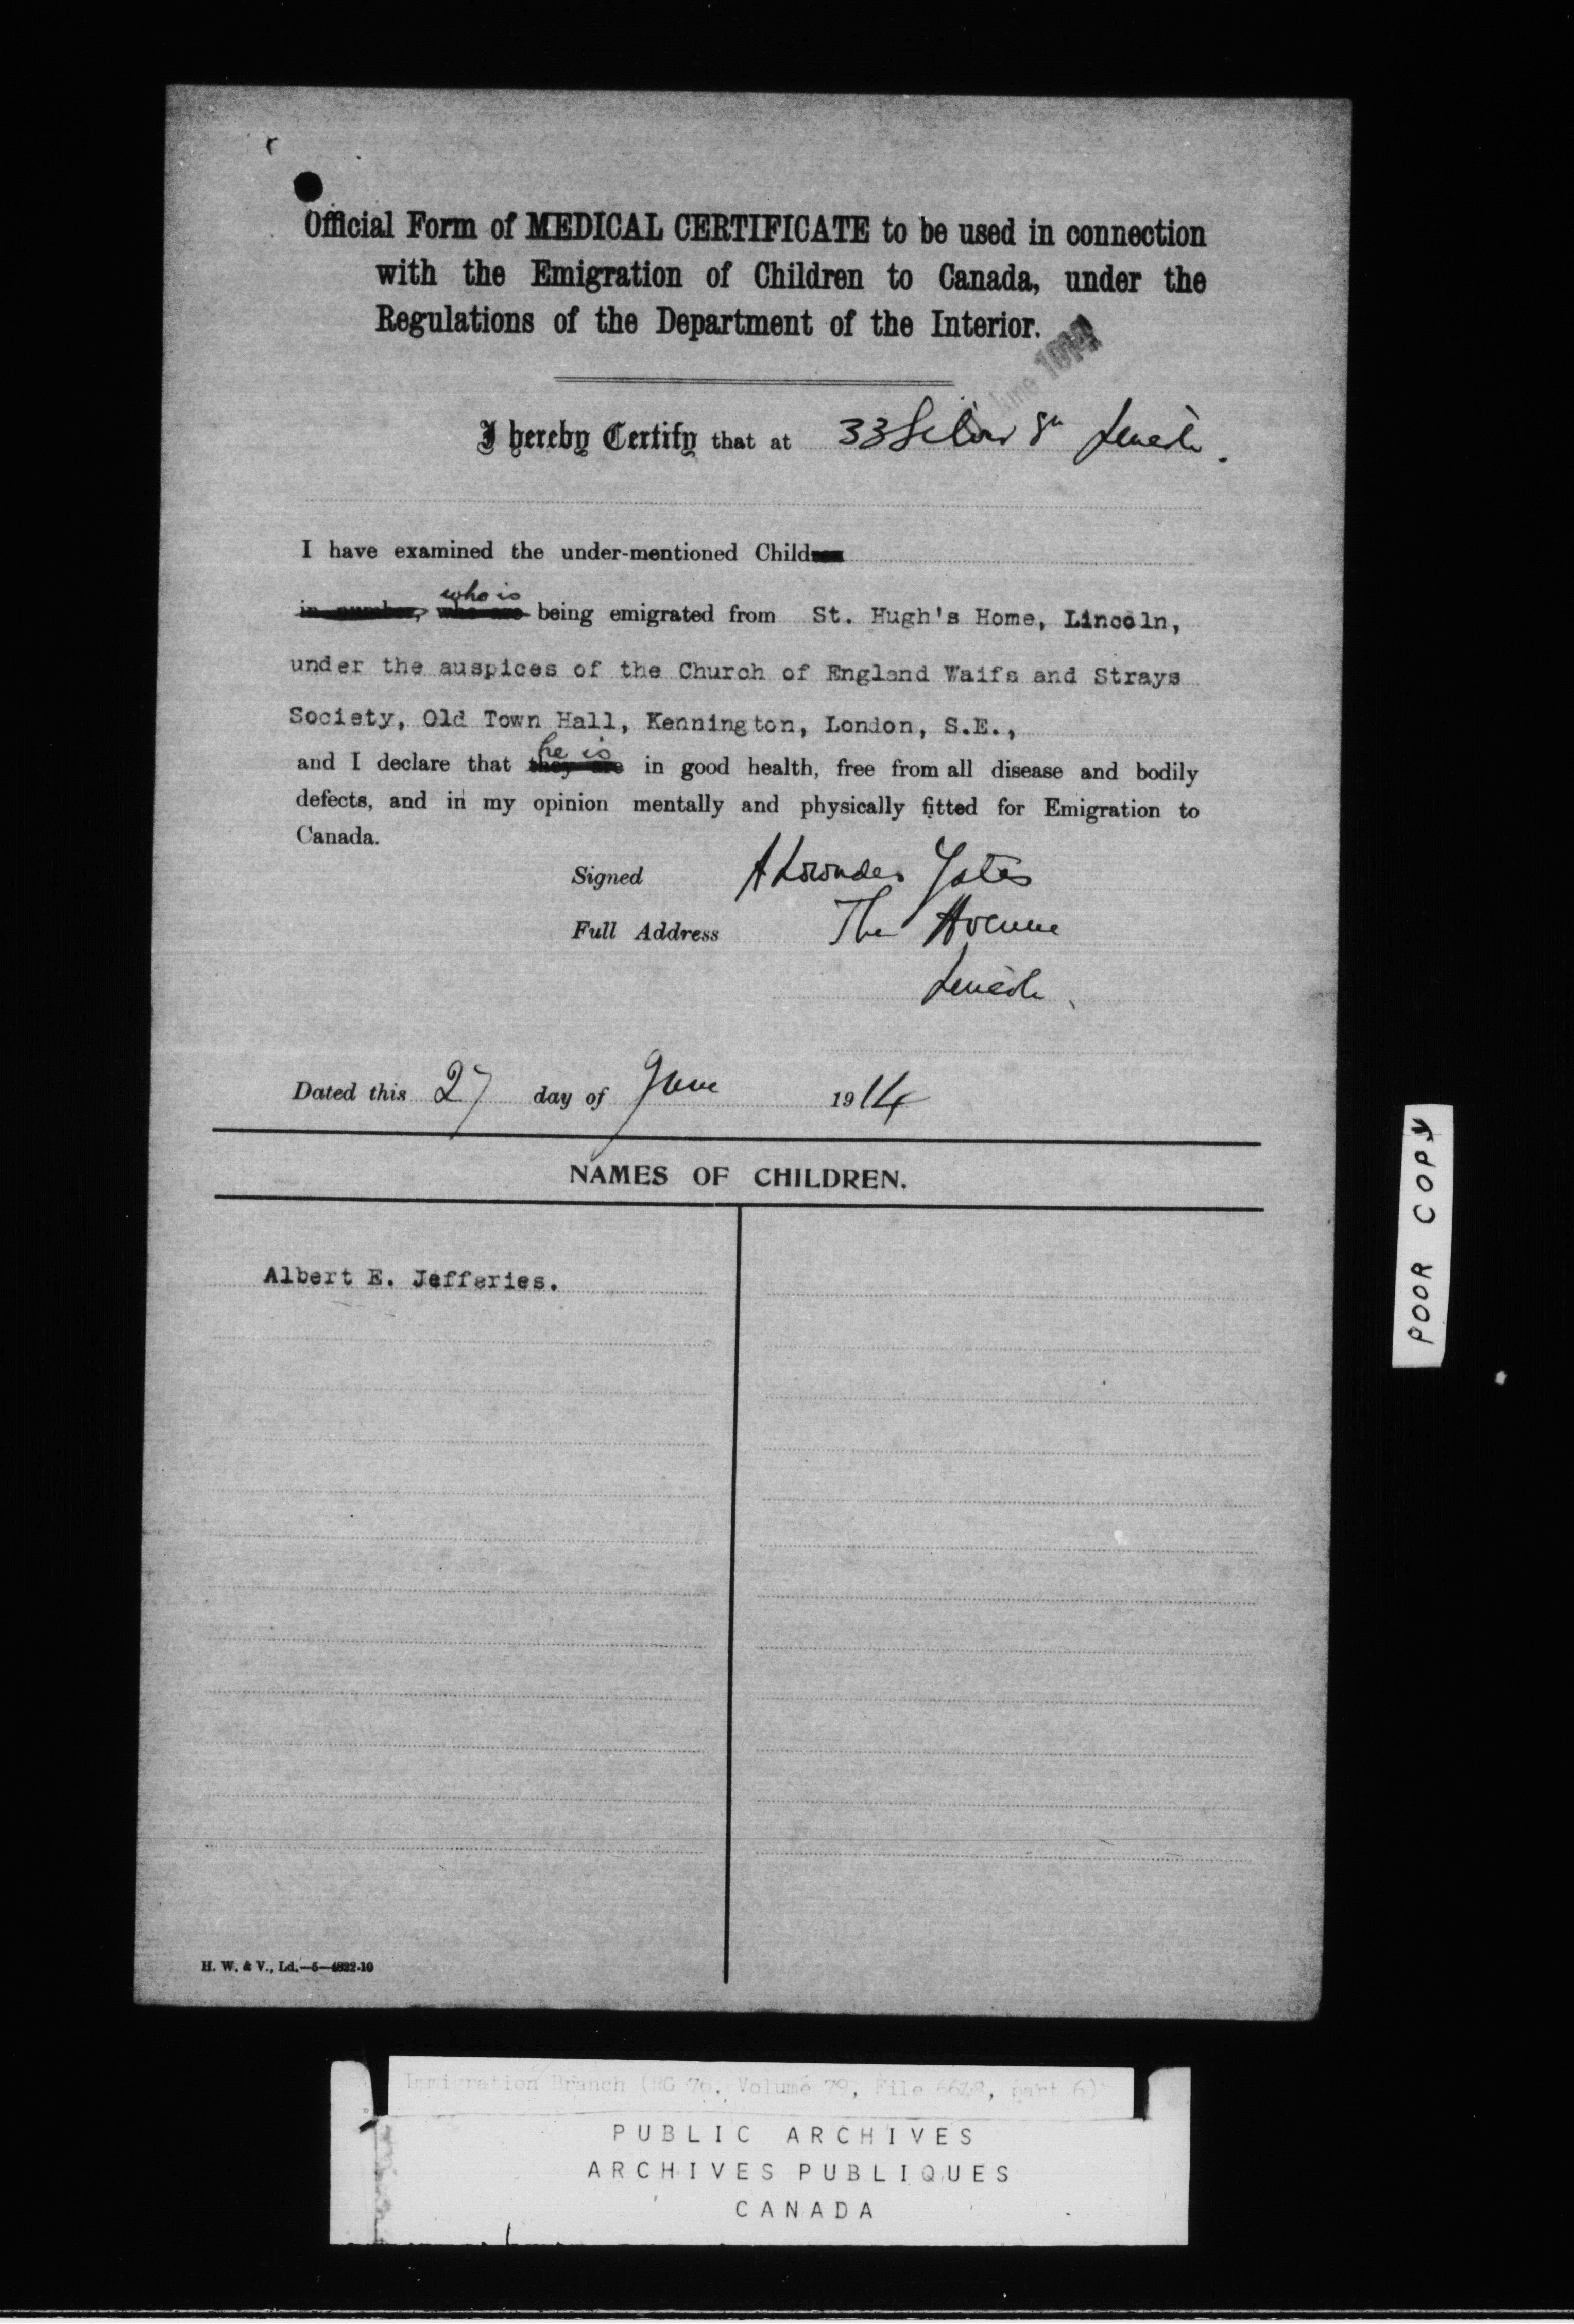 Official Form of MEDICAL CERTIFICATE to be used in connection
with the Emigration of Children to Canada, under the
Regulations of the Department of the Interior.
June 1914
I hereby Certify that at 33 Silver St Lincoln.
I have examined the under-mentioned Children
who is
in number, who are being emigrated from St. Hugh's Home, Lincoln,
under the auspices of the Church of England Waifs and Strays
Society, Old Town Hall, Kennington, London, S.E.,
he is
and I declare that they are in good health, free from all disease and bodily
defects, and in my opinion mentally and physically fitted for Emigration to
Canada.
Signed A Lowndes Yates
Full Address The Avenue
Lincoln
Dated this 27 day of June 1914
NAMES OF CHILDREN.
Albert E. Jefferies.
H. W. & V., Ld.—5—4822-10
POOR COPY
Immigration Branch (RG 76, Volume 79, File 6648, part 6)
PUBLIC ARCHIVES
ARCHIVES PUBLIQUES
CANADA